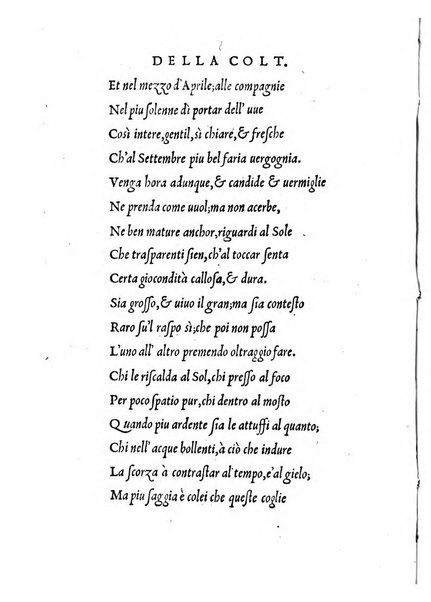 DELLA COLT.
Et nel mezzo d'Aprile; alle compagnie
Nel piu solenne di portar dell' uue
Così intere, gentil, sì chiare, & fresche
Ch'al Settembre piu bel faria uergogna.
Venga hora adunque, & candide & uermiglie
Ne prenda come uuol; ma non acerbe,
Ne ben mature anchor, riguardi al Sole
Che trasparenti sien, ch'al toccar senta
Certa giocondità callosa, & dura.
Sia grosso, & uiuo il gran; ma sia contesto
Raro su'l raspo sì; che poi non possa
L'uno all' altro premendo oltraggio fare.
Chi le riscalda al Sol, chi presso al foco
Per poco spatio pur, chi dentro al mosto
Quando piu ardente sia le attuffi al quanto;
Chi nell' acque bollenti, à ciò che indure
La scorza à contrastar al tempo, e'al gielo;
Ma piu saggia è colei che queste coglie